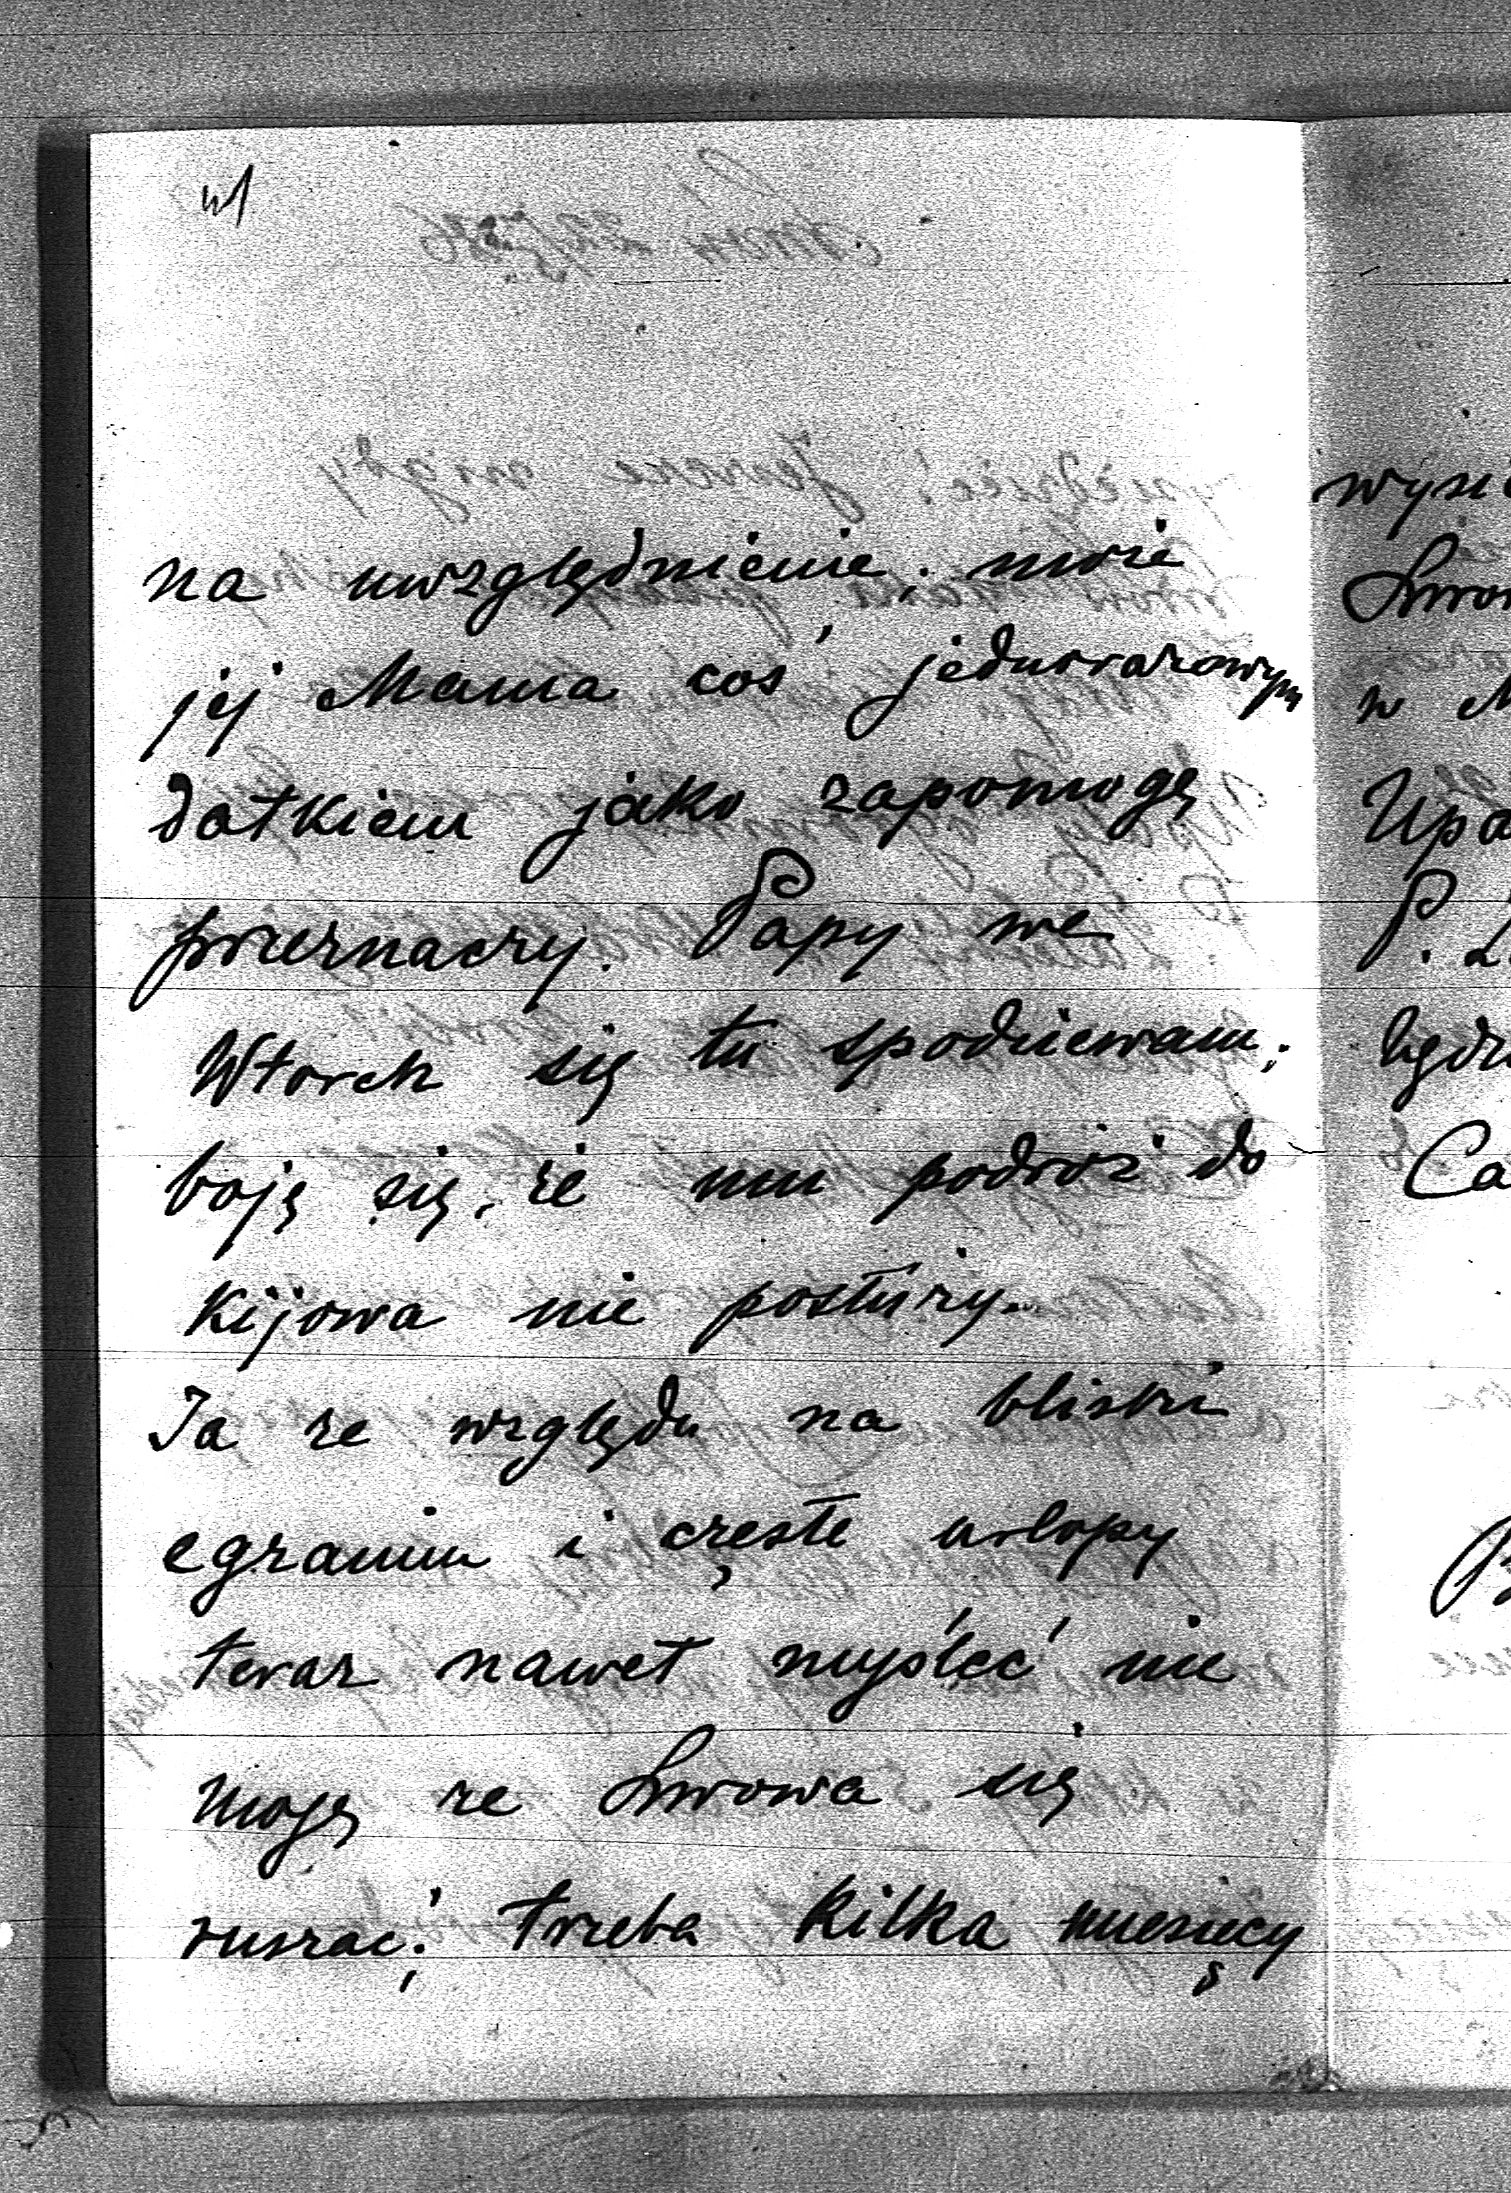 na uwzględnienie; może
jej Mama coś jednorazowym
datkiem jako zapomogę
przeznaczy. Papy we
Wtorek się tu spodziewam;
boję się, że mu podróż do
Kijowa nie posłuży.
Ja ze względu na bliski
egzamin i częste urlopy
teraz nawet myśleć nie
mogę ze Lwowa się
ruszać; trzeba kilka miesięcy